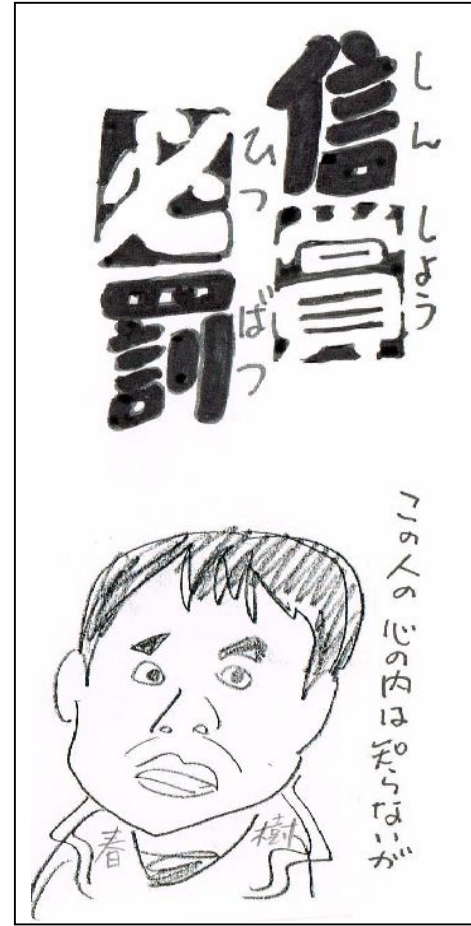 信賞
しんしょう
必罰
ひつばつ
この人の心の内は知らないが
春樹